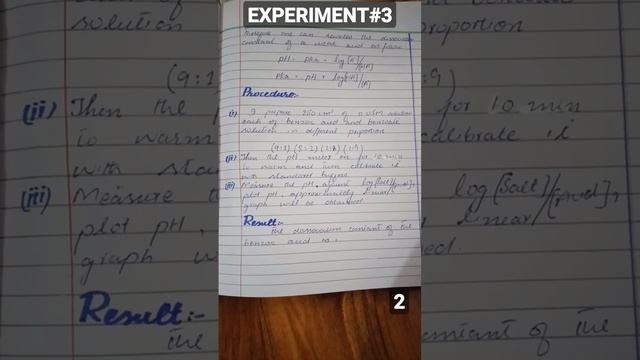 EXPERIMENT#3
constant of a weak acid as from
pH = pka - log [A]/[HA]
pka = pH + log [A]/[HA]
Procedure:-
(i) I prepare 250 cm³ of 0.05M solution
each of benzoic acid and benzoate
solution in different proportion
(9:1) (8:2) (2:8) (1:9)
(ii) Then the pH meter on for 10 min
to warm and then calibrate it
with standard buffers
(iii) Measure the pH against log [salt]/[acid],
plot pH, approximately linear
graph will be obtained
Result:-
The dissociation constant of the
benzoic acid is.
2
solution
(9:1
(ii) Then the
to warm
with sta
(iii) Measure
plot pH,
graph w
Result:-
The
proportion
:9)
for 10 min
calibrate it
log [Salt]/[
linear
ed
constant of the